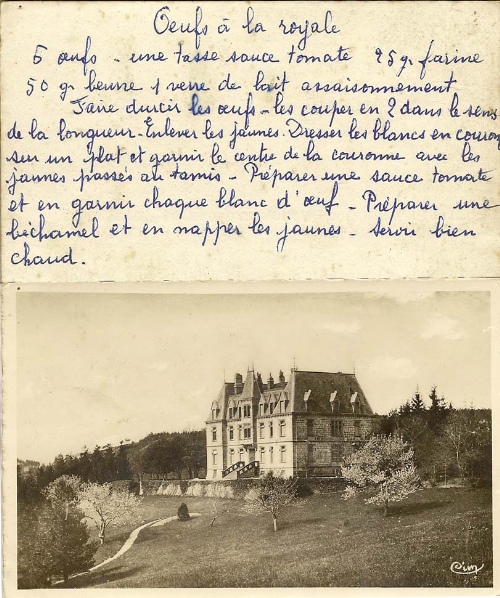 Oeufs à la royale
5 œufs - une tasse sauce tomate 25 gr farine
50 gr beurre 1 verre de lait assaisonnement
Faire durcir les œufs - les couper en 2 dans le sens
de la longueur - Enlever les jaunes. Dresser les blancs en couron
sur un plat et garnir le centre de la couronne avec les
jaunes passés au tamis - Préparer une sauce tomate
et en garnir chaque blanc d'œuf - Préparer une
béchamel et en napper les jaunes - servir bien
chaud.
Cim